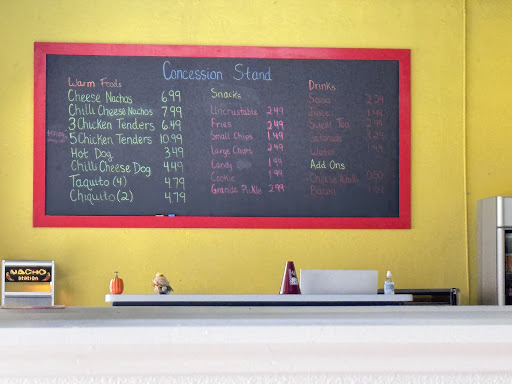 Concession Stand
Warm Foods
Cheese Nachos 6.99
Chilli Cheese Nachos 7.99
3 Chicken Tenders 6.49
5 Chicken Tenders 10.99
Hot Dog 3.49
Chilli Cheese Dog 4.49
Taquito (4) 4.79
Chiquito (2) 4.79
Snacks
Uncrustable 2.49
Fries 2.49
Small Chips 1.49
Large Chips 2.49
Candy 1.99
Cookie 1.99
Grande Pickle 2.99
Drinks
Sweet Tea
Water
Add Ons
Bacon
NACHO
Station